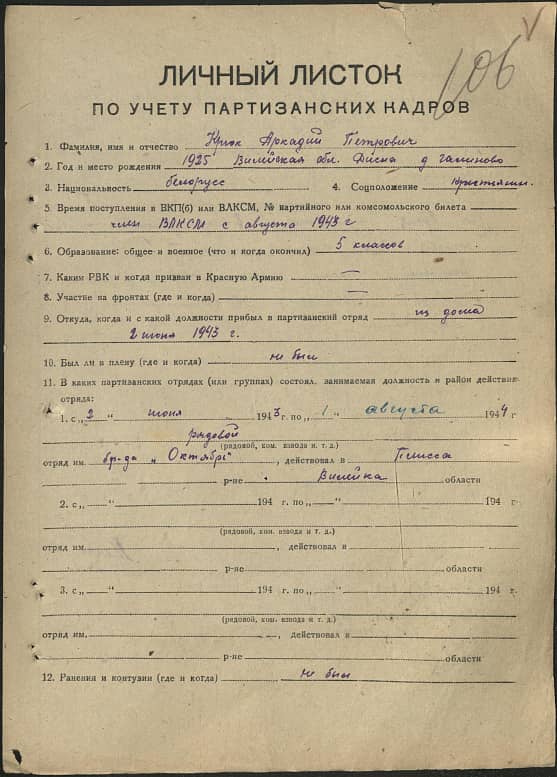 106
ЛИЧНЫЙ ЛИСТОК
ПО УЧЕТУ ПАРТИЗАНСКИХ КАДРОВ
1. Фамилия, имя и отчество Крюк Аркадий Петрович
2. Год и место рождения 1925 Вилейская обл. Дисна д
3. Национальность белорусс 4. Соцположение Крестьянин
5. Время поступления в ВКП(б) или ВЛКСМ, № партийного или комсомольского билета
член ВЛКСМ с августа 1943 г
6. Образование: общее и военное (что и когда окончил) 5 классов
7. Каким РВК и когда призван в Красную Армию —
8. Участие на фронтах (где и когда) —
9. Откуда, когда и с какой должности прибыл в партизанский отряд из дома
2 июня 1943 г.
10. Был ли в плену (где и когда) не был
11. В каких партизанских отрядах (или группах) состоял, занимаемая должность и район действия
отряда:
1. с „ 2 “ июня 1943 г. по „ 1 “ августа 1944 г
рядовой
(рядовой, ком. взвода и т. д.)
отряд им. бр-да „Октябрь“, действовал в Плисса
р-не Вилейка области
2. с „ “ 194 г. по „ “ 194 г.
(рядовой, ком. взвода и т. д.)
отряд им. , действовал в
р-не области
3. с „ “ 194 г. по „ “ 194 г
(рядовой, ком. взвода и т. д.)
отряд им. , действовал в
р-не области
12. Ранения и контузии (где и когда) не был